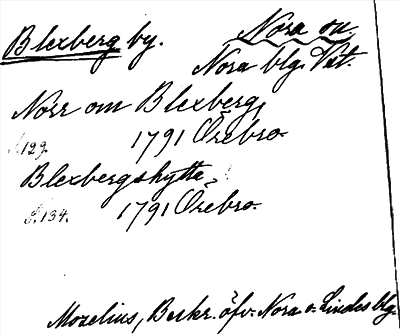 Blexberg by.
Nora sn
Nora blg. Vst.
Norr om Blexberg,
S.129. 1791 Örebro.
Blexbergshytta,
S.134. 1791 Örebro.
Mozelius, Beskr. öfv. Nora o. Lindes blg.